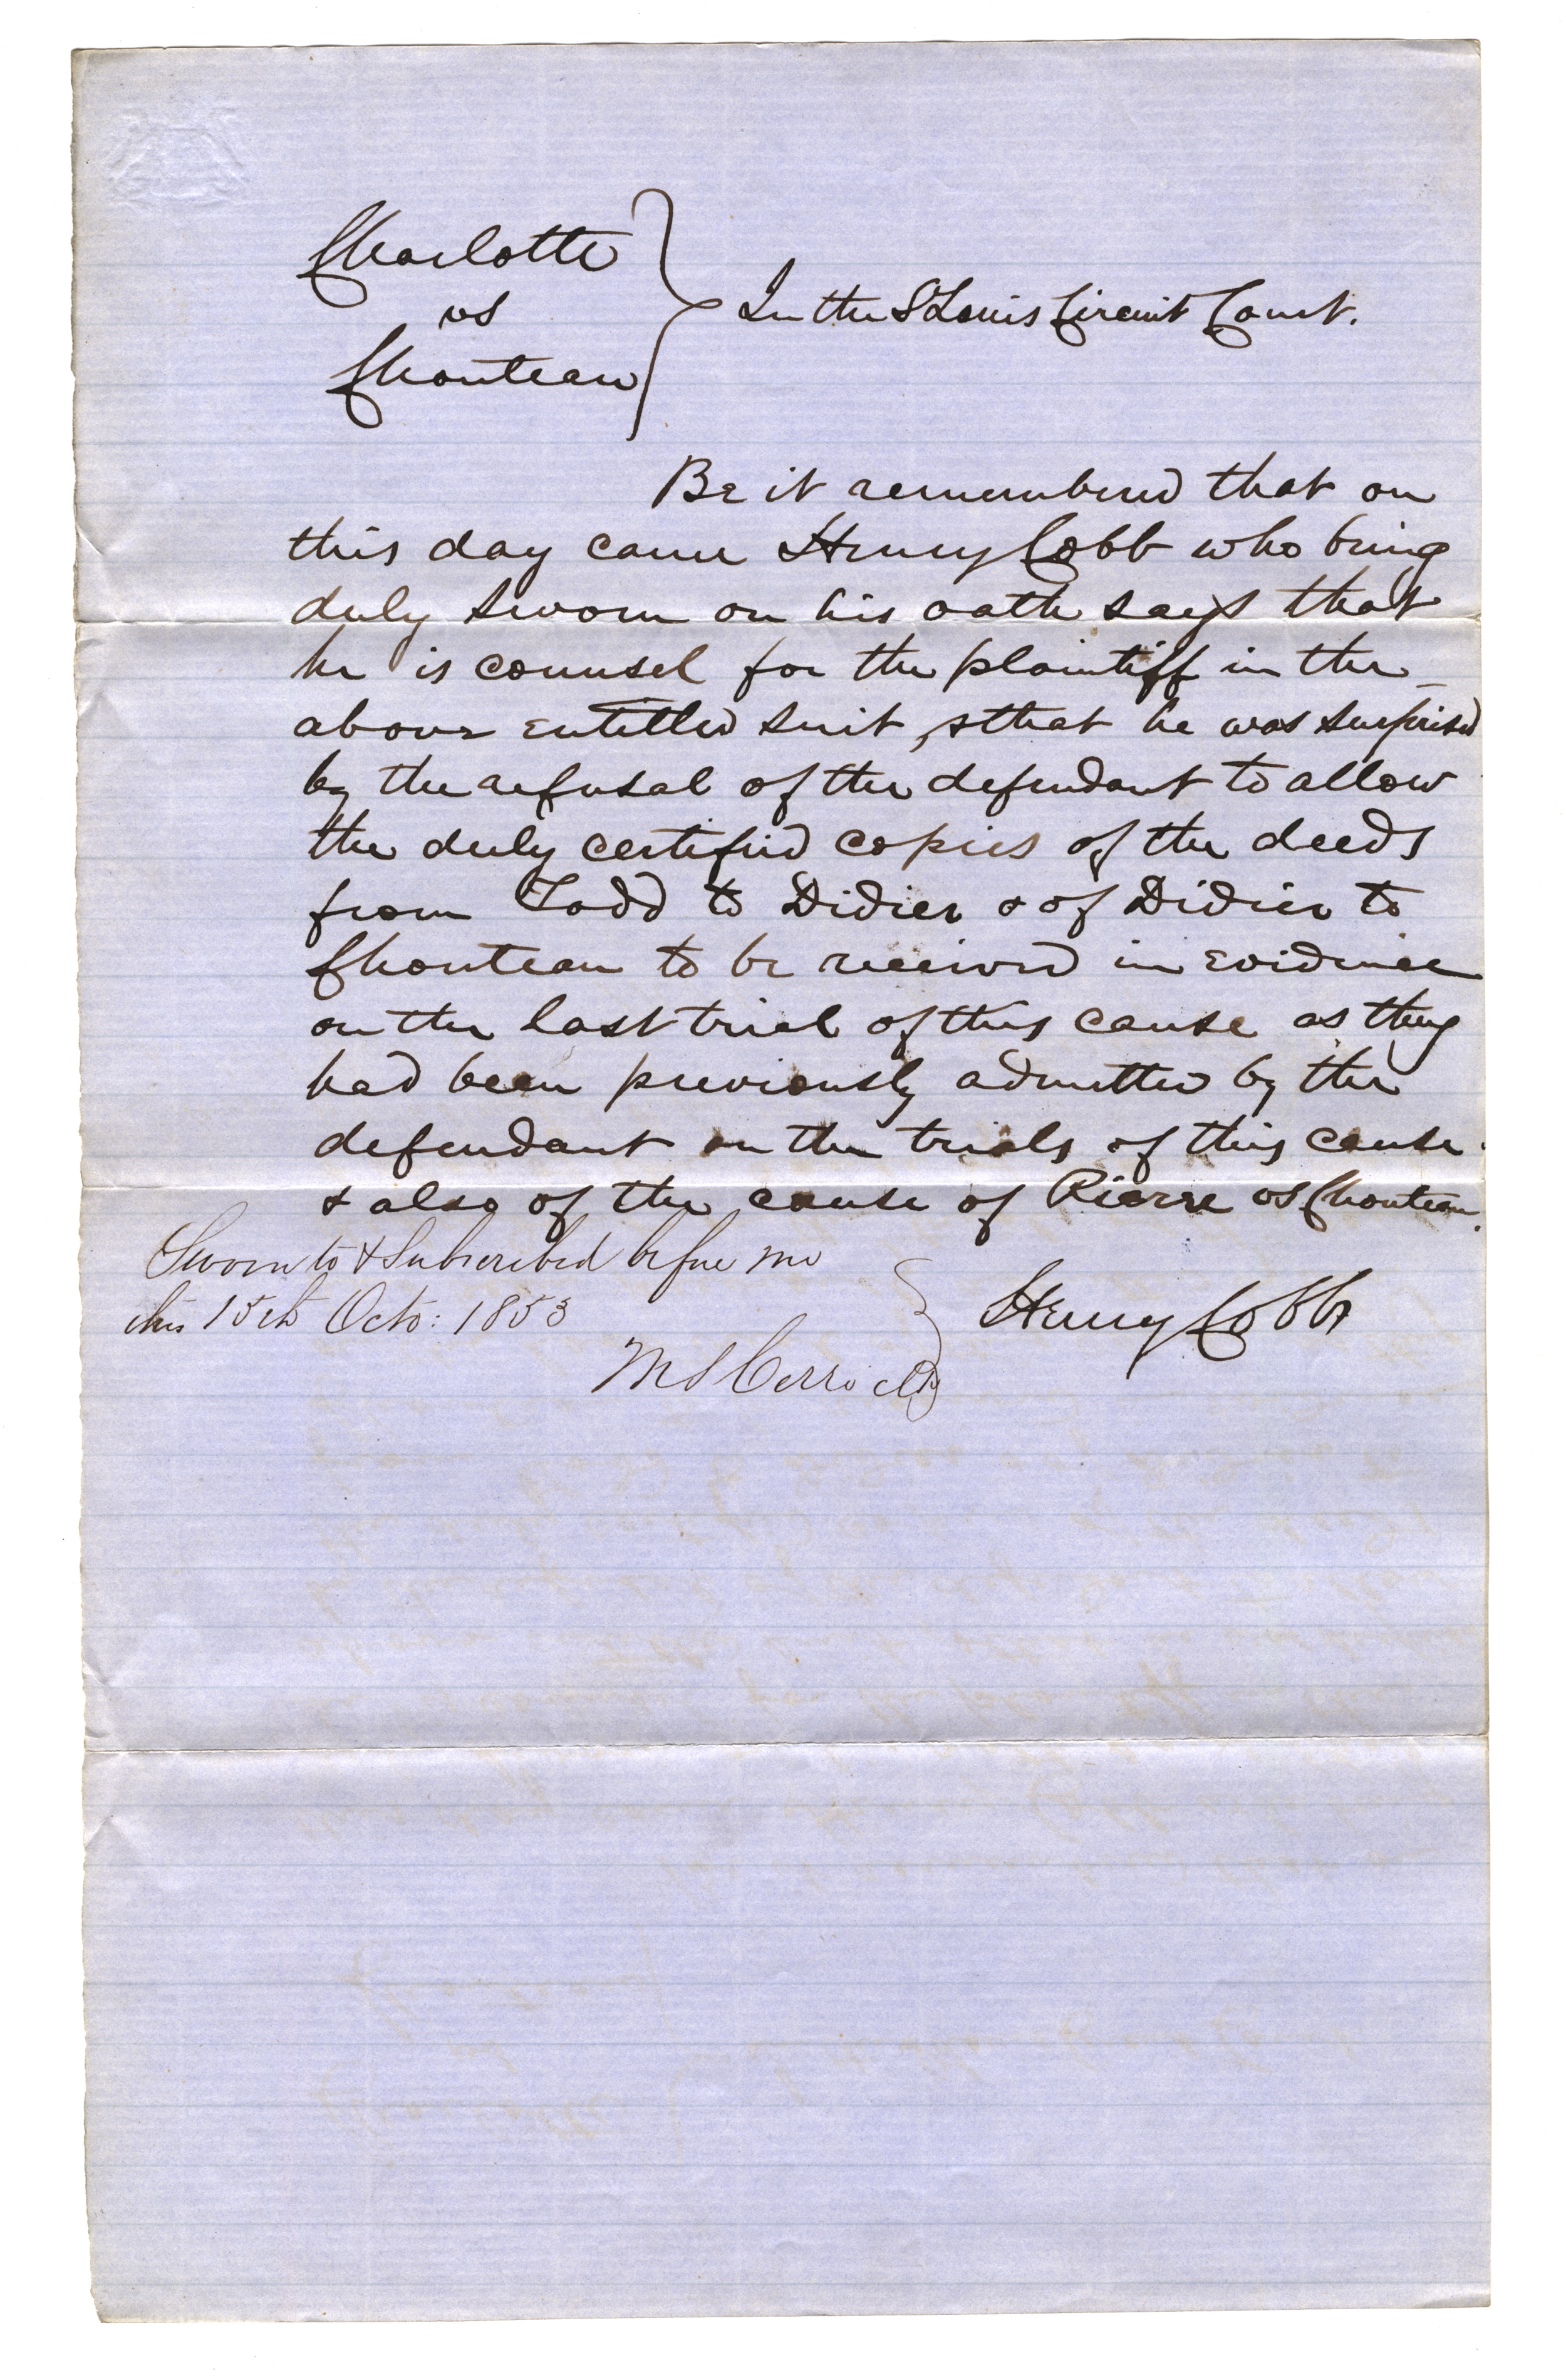 Charlotte
vs
Chouteau
In the St Louis Circuit Court.
Be it remembered that on
this day came Henry Cobb who being
duly sworn on his oath says that
he is counsel for the plaintiff in the
above entitled suit, & that he was surprised
by the refusal of the defendant to allow
the duly certified copies of the deeds
from Todd to Didier & of Didier to
Chouteau to be received in evidence
on the last trial of this cause as they
had been previously admitted by the
defendant on the trials of this cause
& also of the cause of Pierre vs Chouteau.
Sworn to & Subscribed before me
this 15th Octo: 1853
Henry Cobb
M S Cerré clk